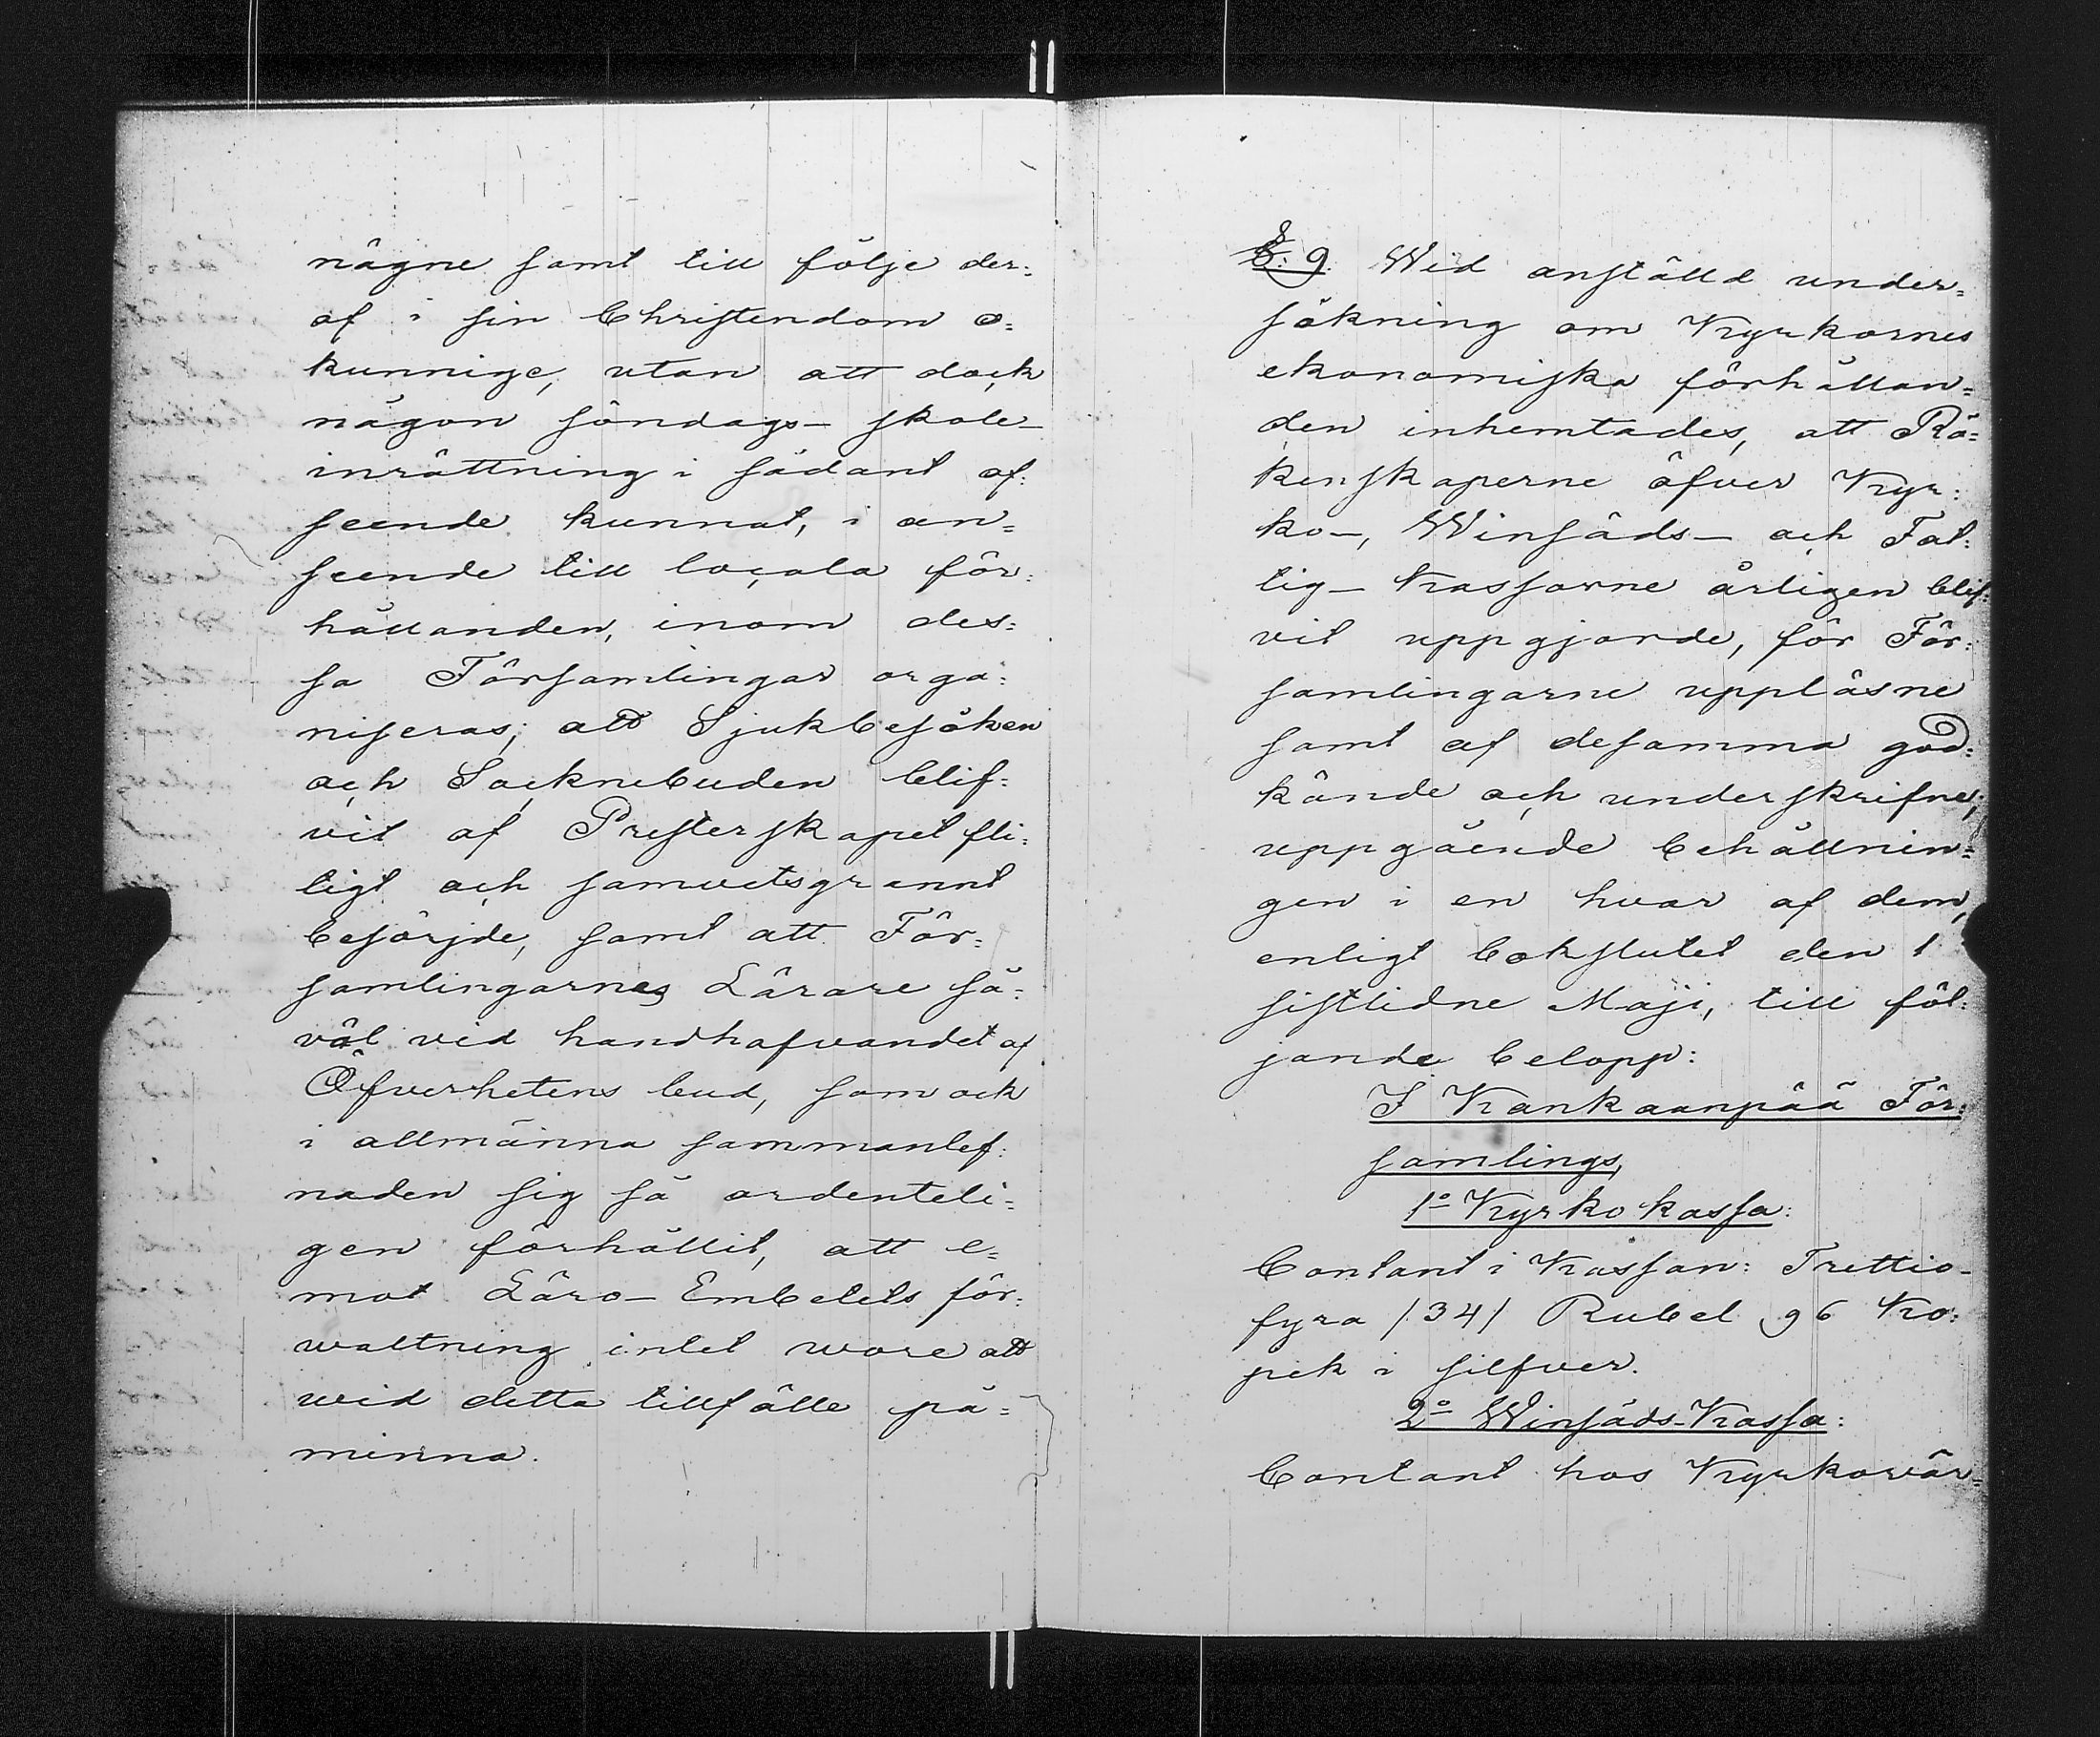 någne samt till följe der=
af i sin Christendom o=
kunnige, utan att dock
någon söndags- skole-
inrättning i sådant af=
seende kunnat, i an=
seende till locala för=
hållanden, inom des=
sa Församlingar orga=
niseras; att Sjukbesöken
och Socknebuden blif=
vit af Presterskapet fli=
tigt och samvetsgrannt
besörjde, samt att För=
samlingarnes Lärare så=
väl vid handhafvandet af
Öfverhetens bud, som ock
i allmänna sammanlef=
naden sig så ordenteli=
gen förhållit, att e=
mot Läro- Embetets för=
waltning intet wore att
wid detta tillfälle på=
minna.
§. 9. Wid anställd under=
sökning om Kyrkornes
ekonomiska förhållan=
den inhemtades, att Rä=
kenskaperne öfver Kyr=
ko-, Winsäds- och Fat=
tig- Kassorne årligen blif=
vit uppgjorde, för För=
samlingarne uppläsne
samt af desamma god=
kände och underskrifne;
uppgående behållnin=
gen i en hvar af dem,
enligt bokslutet den 1
sistlidne Maji, till föl=
jande belopp:
I Kankaanpää För=
samlings,
1º Kyrko kassa:
Contant i Kassan: Trettio-
fyra /34/ Rubel 96 Ko=
pek i silfver.
2º Winsäds-Kassa:
Contant hos Kyrkovär=